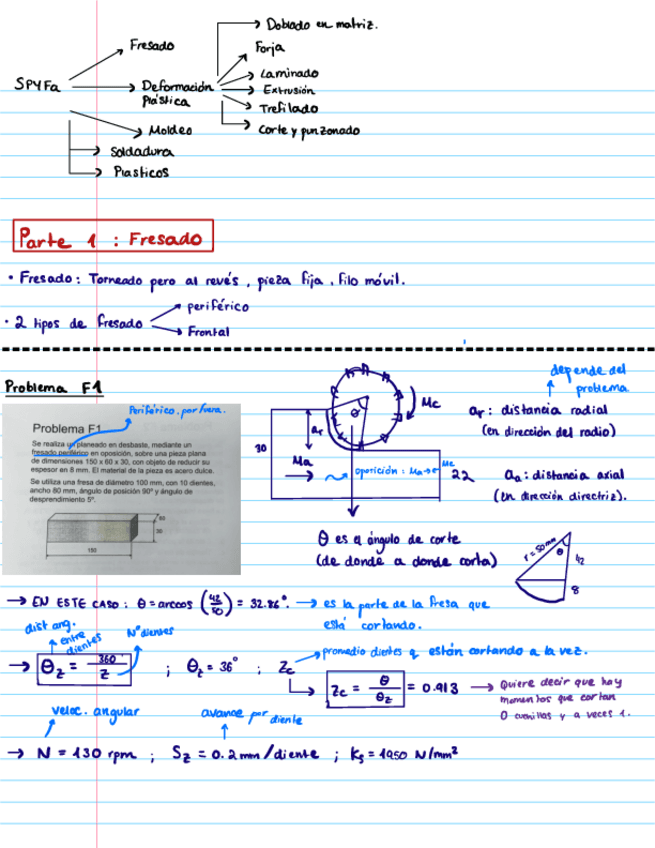 Doblado en matriz.
Fresado
Forja
SPYFa
Deformación
Plástica
Laminado
Extrusión
Trefilado
Moldeo
Corte y punzonado
Soldadura
Plasticos
Parte 1 : Fresado
• Fresado: Torneado pero al revés, pieza fija, filo móvil.
periférico
· 2 tipos de fresado
Frontal
Problema F1
Periférico, por fuera.
Problema F1
Se realiza un planeado en desbaste, mediante un
fresado periférico en oposición, sobre una pieza plana
de dimensiones 150 x 60 x 30, con objeto de reducir su
espesor en 8 mm. El material de la pieza es acero dulce.
Se utiliza una fresa de diámetro 100 mm, con 10 dientes,
ancho 80 mm, ángulo de posición 90º y ángulo de
desprendimiento 5º.
60
30
150
θ
Mc
ar
30
Ma
oposición: Ma→←Mc
22
depende del
problema
ar: distancia radial
(en dirección del radio)
aa: distancia axial
(en dirección directriz).
θ es el ángulo de corte
(de donde a donde corta)
r = 50mm
θ
42
8
→ EN ESTE CASO: θ = arccos (42/50) = 32.86°. → es la parte de la fresa que
está cortando.
dist ang.
entre
dientes
Nº dientes
→ θz = 360°/Z ; θz = 36° ; Zc
promedio dientes q están cortando a la vez.
Zc = θ/θz = 0.913 → Quiere decir que hay
momentos que cortan
0 cuchillas y a veces 1.
veloc. angular
avance por diente
→ N = 130 rpm ; Sz = 0.2 mm/diente ; Ks = 1950 N/mm²